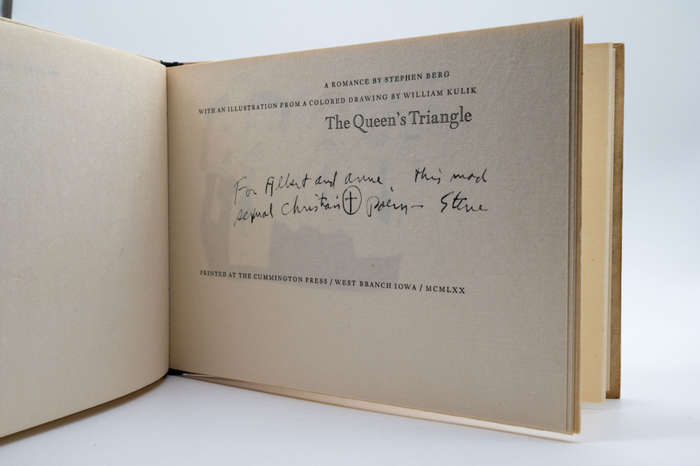 A ROMANCE BY STEPHEN BERG
WITH AN ILLUSTRATION FROM A COLORED DRAWING BY WILLIAM KULIK
The Queen's Triangle
For Albert and Anne, this mad
sexual Christian poem – Steve
PRINTED AT THE CUMMINGTON PRESS / WEST BRANCH IOWA / MCMLXX